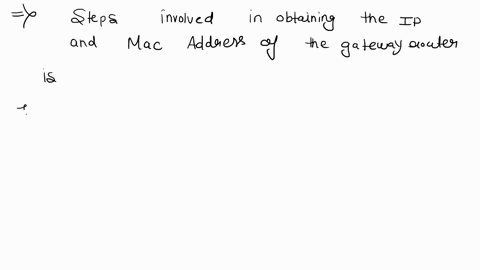 => Steps involved in obtaining the IP
and Mac Address of the gateway router
is